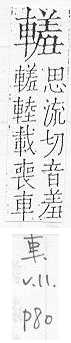 思流切音羞
載喪車
車.
V.11.
P80